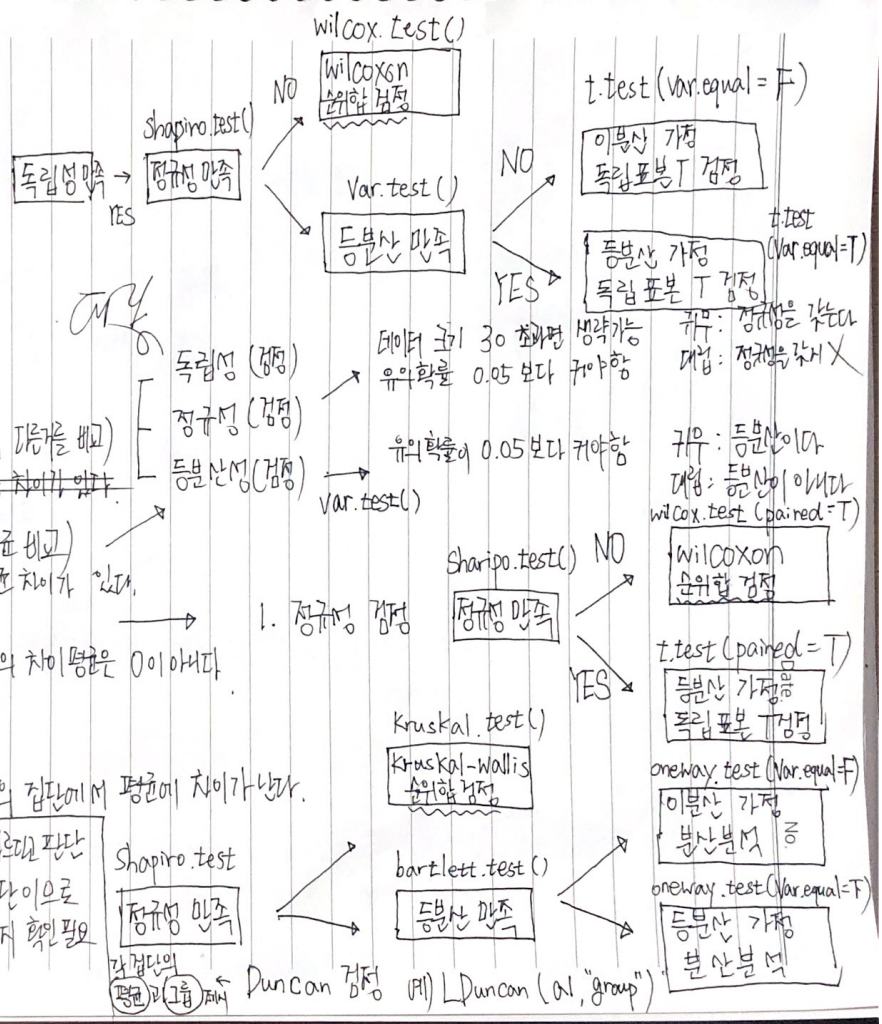 wilcox.test()
Wilcoxon
순위합 검정
NO
shapiro.test()
독립성 만족 → 정규성 만족
YES
Var.test()
등분산 만족
t.test (Var.equal = F)
NO
이분산 가정
독립표본 T 검정
t.test
(Var.equal=T)
YES
등분산 가정
독립 표본 T 검정
독립성 (검정)
정규성 (검정)
등분산성(검정)
데이터 크기 30 초과면 생략가능
유의확률 0.05 보다 커야함
귀무: 정규성을 갖는다
대립: 정규성을 갖지 X
유의확률이 0.05보다 커야함
귀무: 등분산이다
대립: 등분산이 아니다
Var.test()
다른거를 비교)
차이가 있다.
균 비교)
차이가 있다.
의 차이 평균은 0이 아니다
1. 정규성 검정
Sharipo.test()
정규성 만족
NO
wilcox.test (paired=T)
Wilcoxon
순위합 검정
YES
t.test (paired = T)
등분산 가정
독립 표본 T검정
의 집단에서 평균에 차이가 난다.
르다고 판단
단이으로
지 확인필요
Shapiro.test
정규성 만족
Kruskal.test()
Kruskal-Wallis
순위합 검정
bartlett.test()
등분산 만족
oneway.test (Var.equal=F)
이분산 가정
분산분석
NO.
oneway.test (Var.equal=F)
등분산 가정
분산분석
각 집단의
평균과 그룹 제시
Duncan 검정 예) LDuncan (a1, "group")